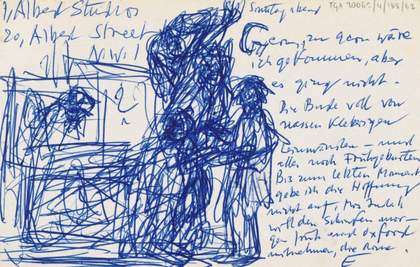 7, Albert Studios
20, Albert Street
N.W.1
Sonntag abend
TGA 20065/4/
Gern, zu gern wäre
ich gekommen, aber
es ging nicht.
Die Bude voll von
nassen klebrigen
Leinwänden – und
alles noch Frühgeburten.
Bis zum letzten Moment
gab ich die Hoffnung
nicht auf,
will den Schinken mor-
gen früh nach Oxford
mitnehmen, die
E